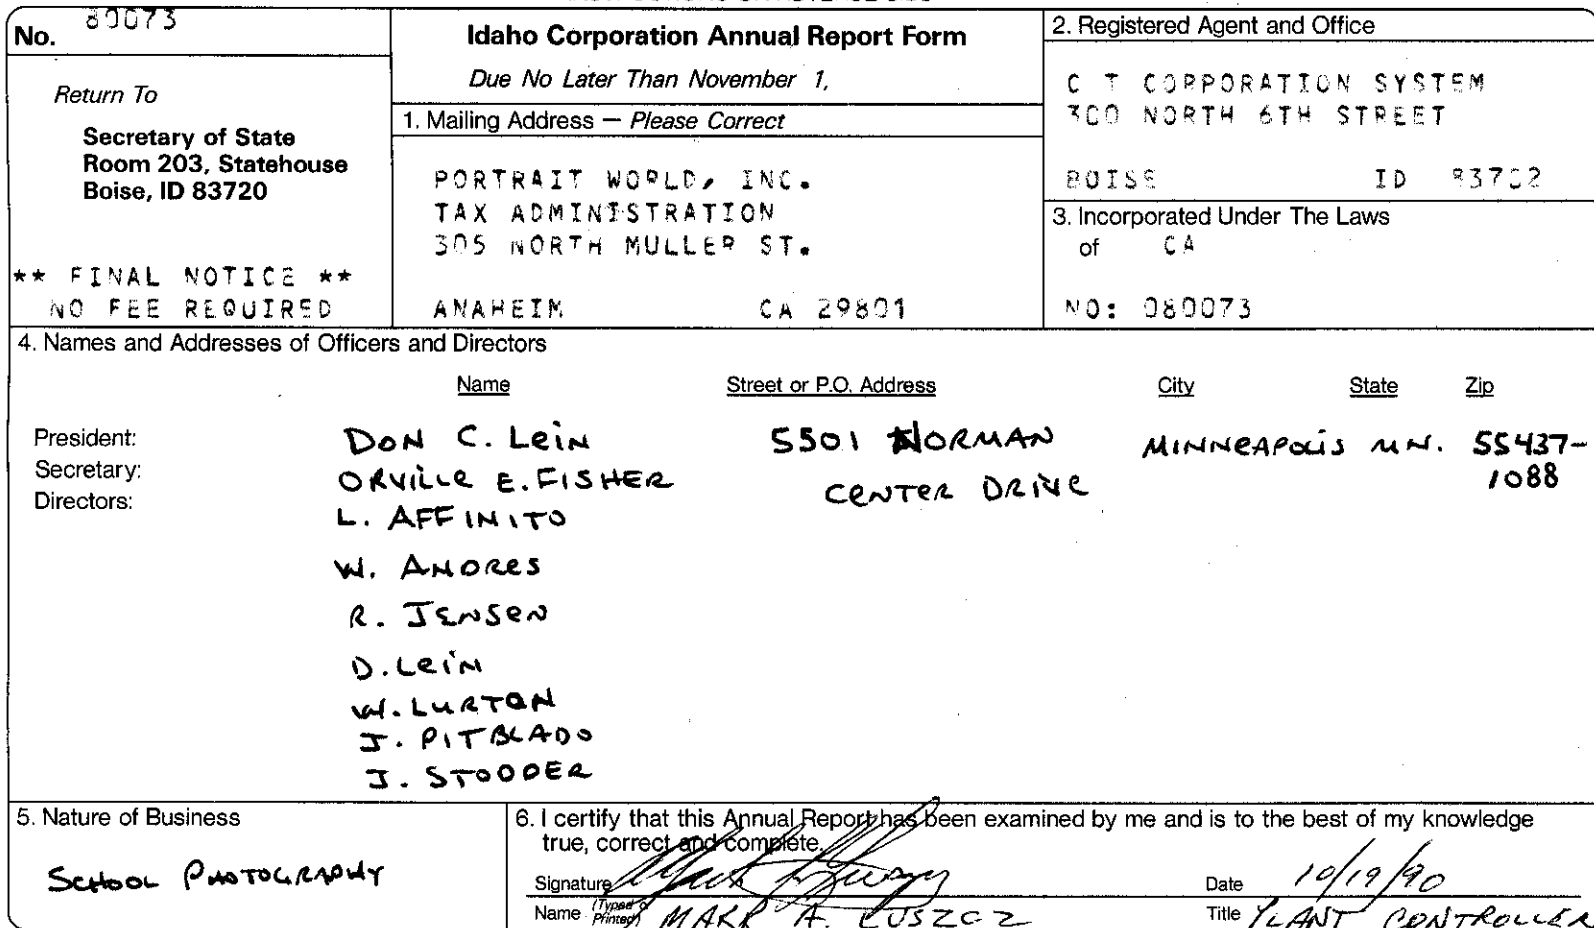 No. 80073
Return To
Secretary of State
Room 203, Statehouse
Boise, ID 83720
** FINAL NOTICE **
NO FEE REQUIRED
Idaho Corporation Annual Report Form
Due No Later Than November 1,
1. Mailing Address — Please Correct
PORTRAIT WORLD, INC.
TAX ADMINISTRATION
305 NORTH MULLER ST.
ANAHEIM CA 29801
2. Registered Agent and Office
C T CORPORATION SYSTEM
300 NORTH 6TH STREET
BOISE ID 83702
3. Incorporated Under The Laws
of CA
NO: 080073
4. Names and Addresses of Officers and Directors
Name Street or P.O. Address City State Zip
President: DON C. LeiN 5501 NORMAN MINNeAPOLiS MN. 55437-
Secretary: ORViLLe E. FISHeR CeNTeR DRiVe 1088
Directors: L. AFFINITO
W. ANDReS
R. JeNSeN
D. LeiN
W. LURTON
J. PITBLADO
J. STODDER
5. Nature of Business
SCHOOL PHOTOGRAPHY
6. I certify that this Annual Report has been examined by me and is to the best of my knowledge
true, correct and complete.
Signature Date 10/19/90
Name (Typed or Printed) MARK A. LUSZCZ Title PLANT CONTROLLER